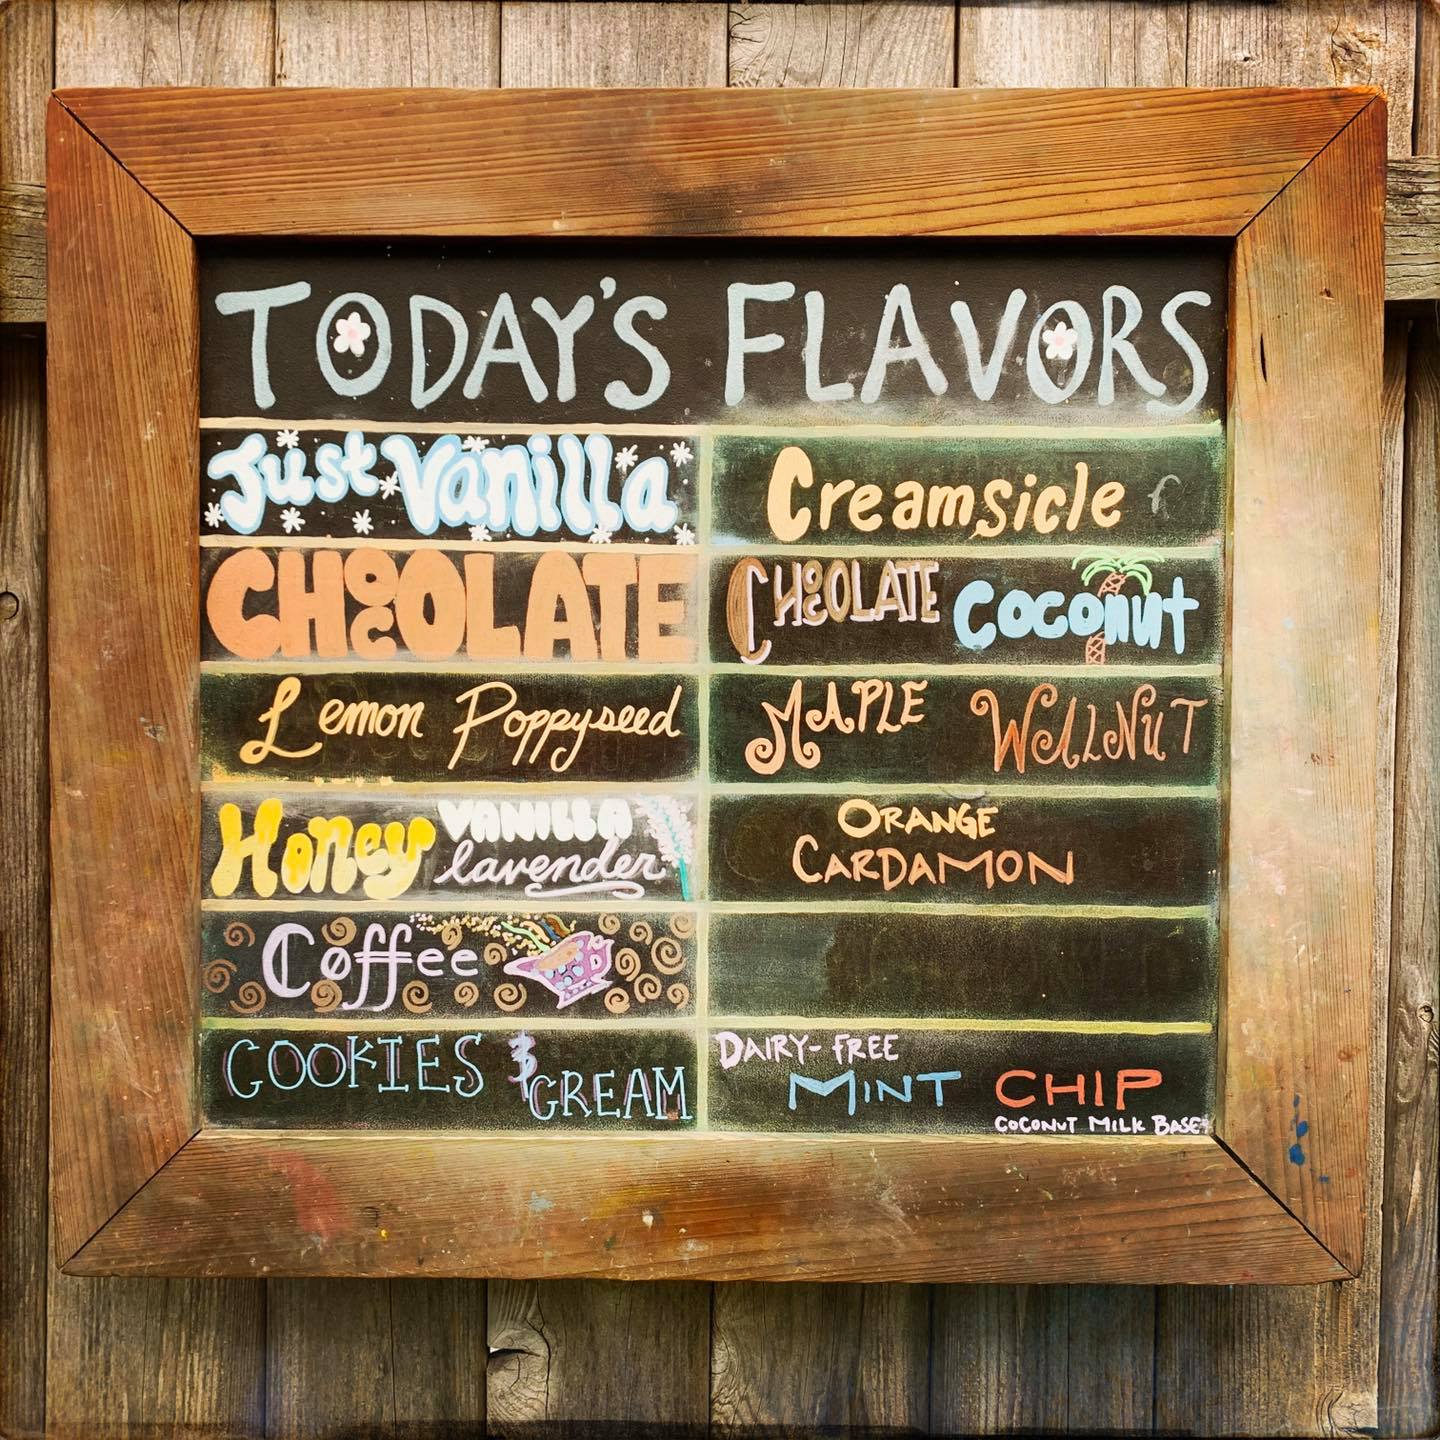 TODAY'S FLAVORS
Just Vanilla
CHOCOLATE
Lemon Poppyseed
Honey VANILLA
lavender
Coffee
COOKIES &
CREAM
Creamsicle
CHOCOLATE Coconut
MAPLE WALNUT
ORANGE
CARDAMON
DAIRY-FREE
MINT CHIP
COCONUT MILK BASE